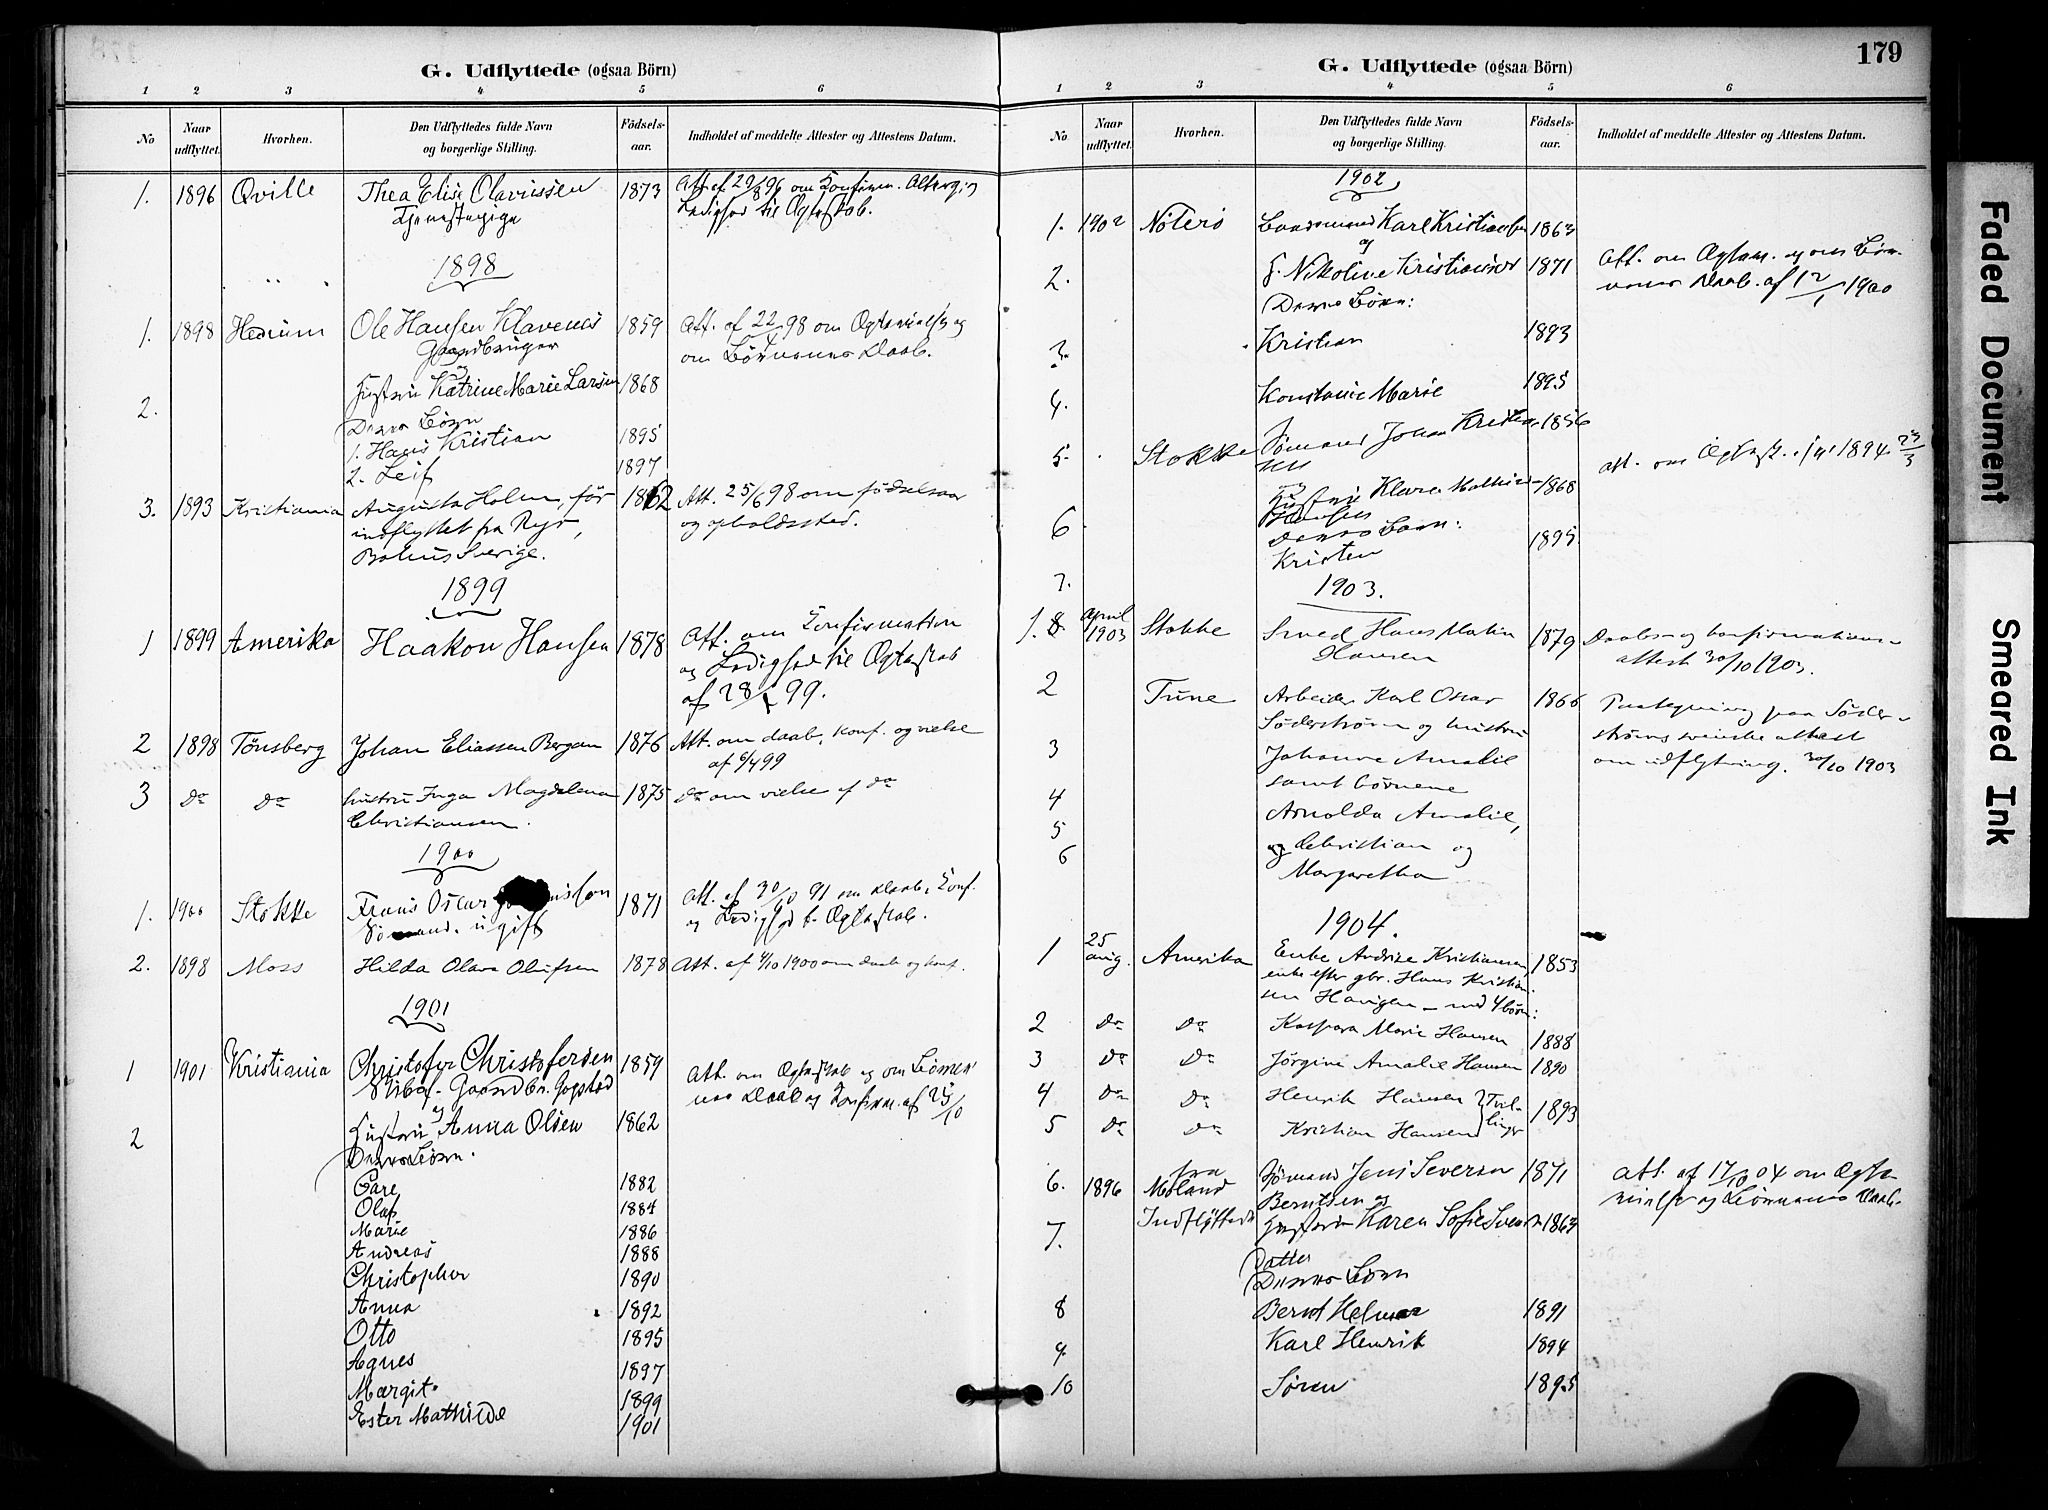 G. Udflyttede (ogsaa Börn)
1 2 3 4 5 6
No Naar udflyttet. Hvorhen. Den Udflyttedes fulde Navn og borgerlige Stilling. Födsels-aar. Indholdet af meddelte Attester og Attestens Datum.
1. 1896 Qville Thea Elise Olavussen 1873 Att. af 29/8 96 om Konfirm. Altergang
Tjenestepige Ledighed til Ægteskab.
1898
1. 1898 Hedrum Ole Hansen Klavenes 1859 Att. af 22/4 98 om Ægtevielse og
Gaardbruger om Børnenes Daab.
og
2. Hustru Katrine Marie Larsen 1868
Deres Børn
1. Hans Kristian 1895
2. Leif 1897
3. 1893 Kristiania Augusta Holm, før 1862 Att. 25/6 98 om fødselsaar
indflyttet fra og opholdssted.
Bohus Sverige.
1899
1 1899 Amerika Haakon Hansen 1878 Att. om Konfirmation
og Ledighed til Ægteskab
af 28 99.
2 1898 Tønsberg Johan Eliassen Bergan 1876 Att. om daab, konf. og vielse
af 6/4 99
3 do do hustru Inga Magdalena 1875 do om vielse af do
Christiansen.
1900
1. 1900 Stokke Frans Oscar 1871 Att. af 30/10 91 om Daab, Konf.
Sømand. ugift og Ledighed t. Ægteskab.
2. 1898 Moss Hilda Olava Olufsen 1878 Att. af 4/10 1900 om daab og konf.
1901
1 1901 Kristiania Christofer Christofersen 1859 Att. om Ægteskab og om Børne
Gaardbr. Gogstad nes Daab og Konfirm. af 25/10
og
2 Hustru Anna Olsen 1862
Deres Børn.
Gare 1882
Olaf 1884
Marie 1886
Andreas 1888
Christopher 1890
Anna 1892
Otto 1895
Agnes 1897
Margit 1899
Ester Mathilde 1901
G. Udflyttede (ogsaa Börn) 179
1 2 3 4 5 6
No Naar udflyttet. Hvorhen. Den Udflyttedes fulde Navn og borgerlige Stilling. Födsels-aar. Indholdet af meddelte Attester og Attestens Datum.
1902
1. 1902 Nøterø Baadsmand Karl Kristiansen 1863
og
2. H. Nikoline Kristiansen 1871 Att. om Ægtesk. og om Bør-
Deres Børn: nenes Daab. af 12/1 1900
3. Kristian 1893
4. Konstanse Marie 1895
5. Stokke Sømand Johan Kristian- 1856
sen att. om Ægtesk. 1894 23/3
og
6 Hustru Klara Mathilde 1868
Hansen
Deres Barn:
7. Kristen 1895
1903.
1. 8. April 1903 Stokke Smed Hans Martin 1879 Daabs- og konfirmations-
Hansen attest 30/10 1903.
2 Tune Arbeider Karl Oscar 1866 Paategning paa Söder-
Söderström og hustru ströms svenske attest
3 Johanne Amalie om udflytning. 30/10 1903
samt börnene
4 Arnolda Amalie,
5 Christian og
6 Margaretha
1904.
1 25 aug. Amerika Enke Andrine Kristiansen, 1853
enke efter gbr. Hans Kristian-
sen Haugen – med 4 børn:
2 do do Kaspara Marie Hansen 1888
3 do do Jørgine Amalie Hansen 1890
4 do do Henrik Hansen } Tvil- 1893
5 do do Kristian Hansen } linger
6. 1896 fra Moland Sømand Jens Severin 1871 Att. af 17/10 04 om Ægte
Indflyttede Berntsen og vielse og Børnenes Daab.
7. Hustru Karen Sofie Svens 1863
datter
Deres Børn
8 Bernt Helmer 1891
9. Karl Henrik 1894
10 Søren 1895
Faded Document
Smeared Ink